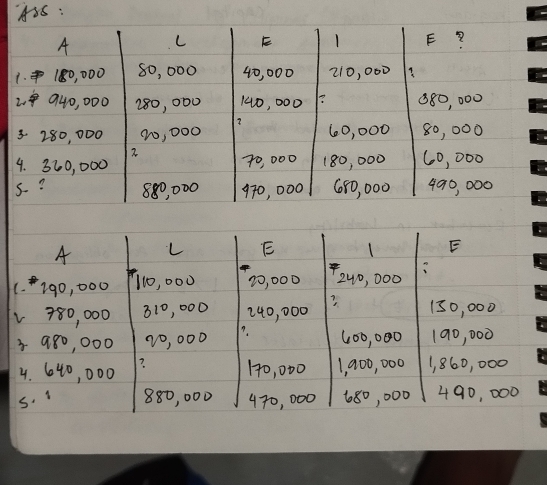 Ass:
A L E I E ?
1. ₱ 180,000 80,000 40,000 210,000 ?
2. ₱ 940,000 280,000 140,000 ? 380,000
3. 280,000 20,000 ? 60,000 80,000
4. 360,000 ? 70,000 180,000 60,000
5. ? 880,000 470,000 680,000 490,000
A L E I E
1. ₱ 290,000 ₱ 110,000 ₱ 20,000 ₱ 240,000 ?
2. 780,000 310,000 240,000 ? 130,000
3. 980,000 20,000 ? 600,000 190,000
4. 640,000 ? 170,000 1,900,000 1,860,000
5. ? 880,000 470,000 680,000 490,000